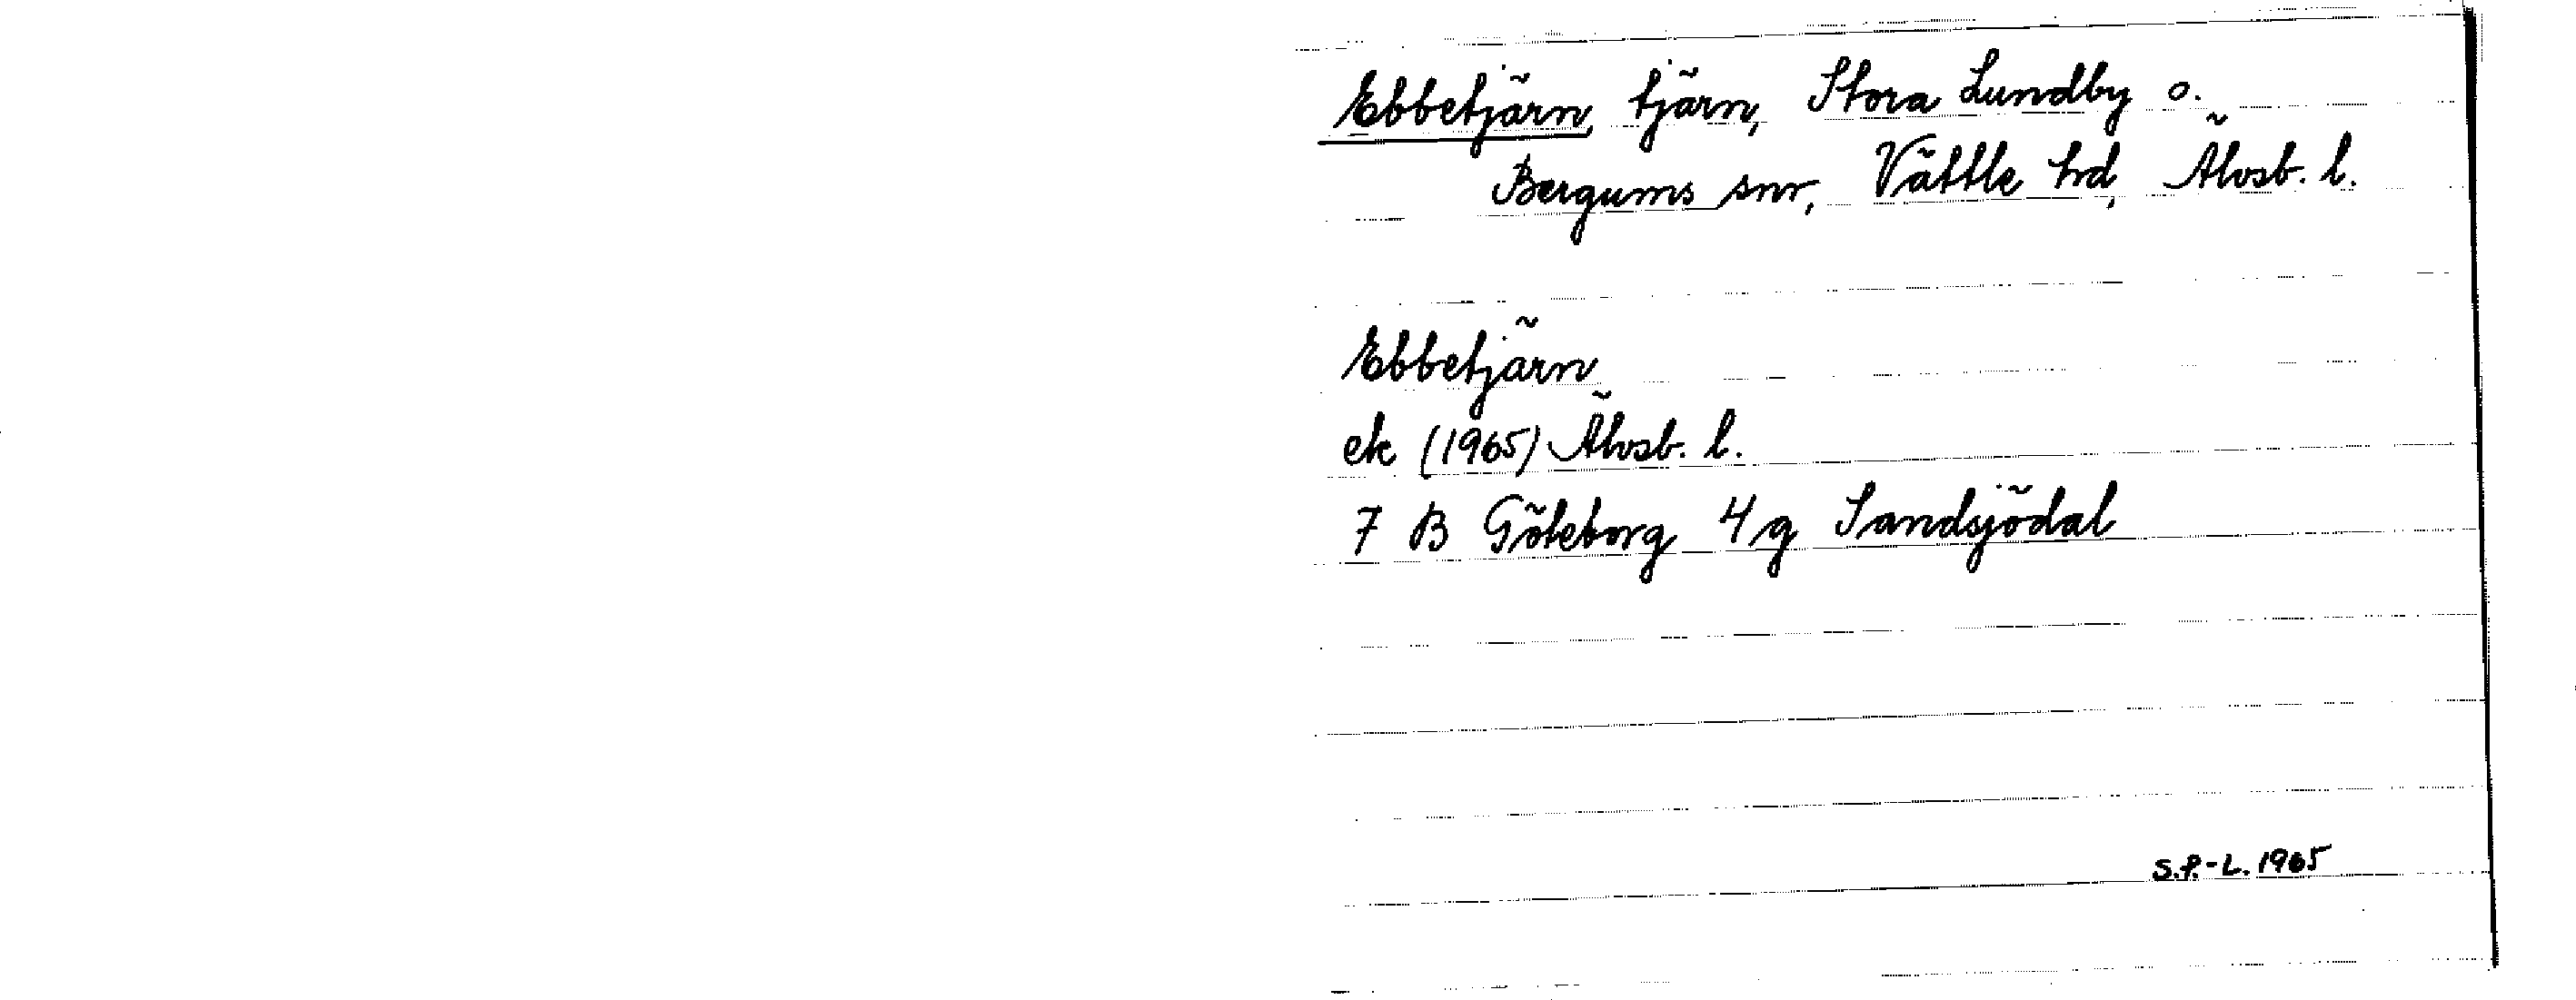 Ebbetjärn, tjärn, Stora Lundby o.
Bergums snr, Vättle hd, Älvsb. l.
Ebbetjärn
ek (1965) Älvsb. l.
7 B Göteborg 4 g Sandsjödal
S.P.-L. 1965